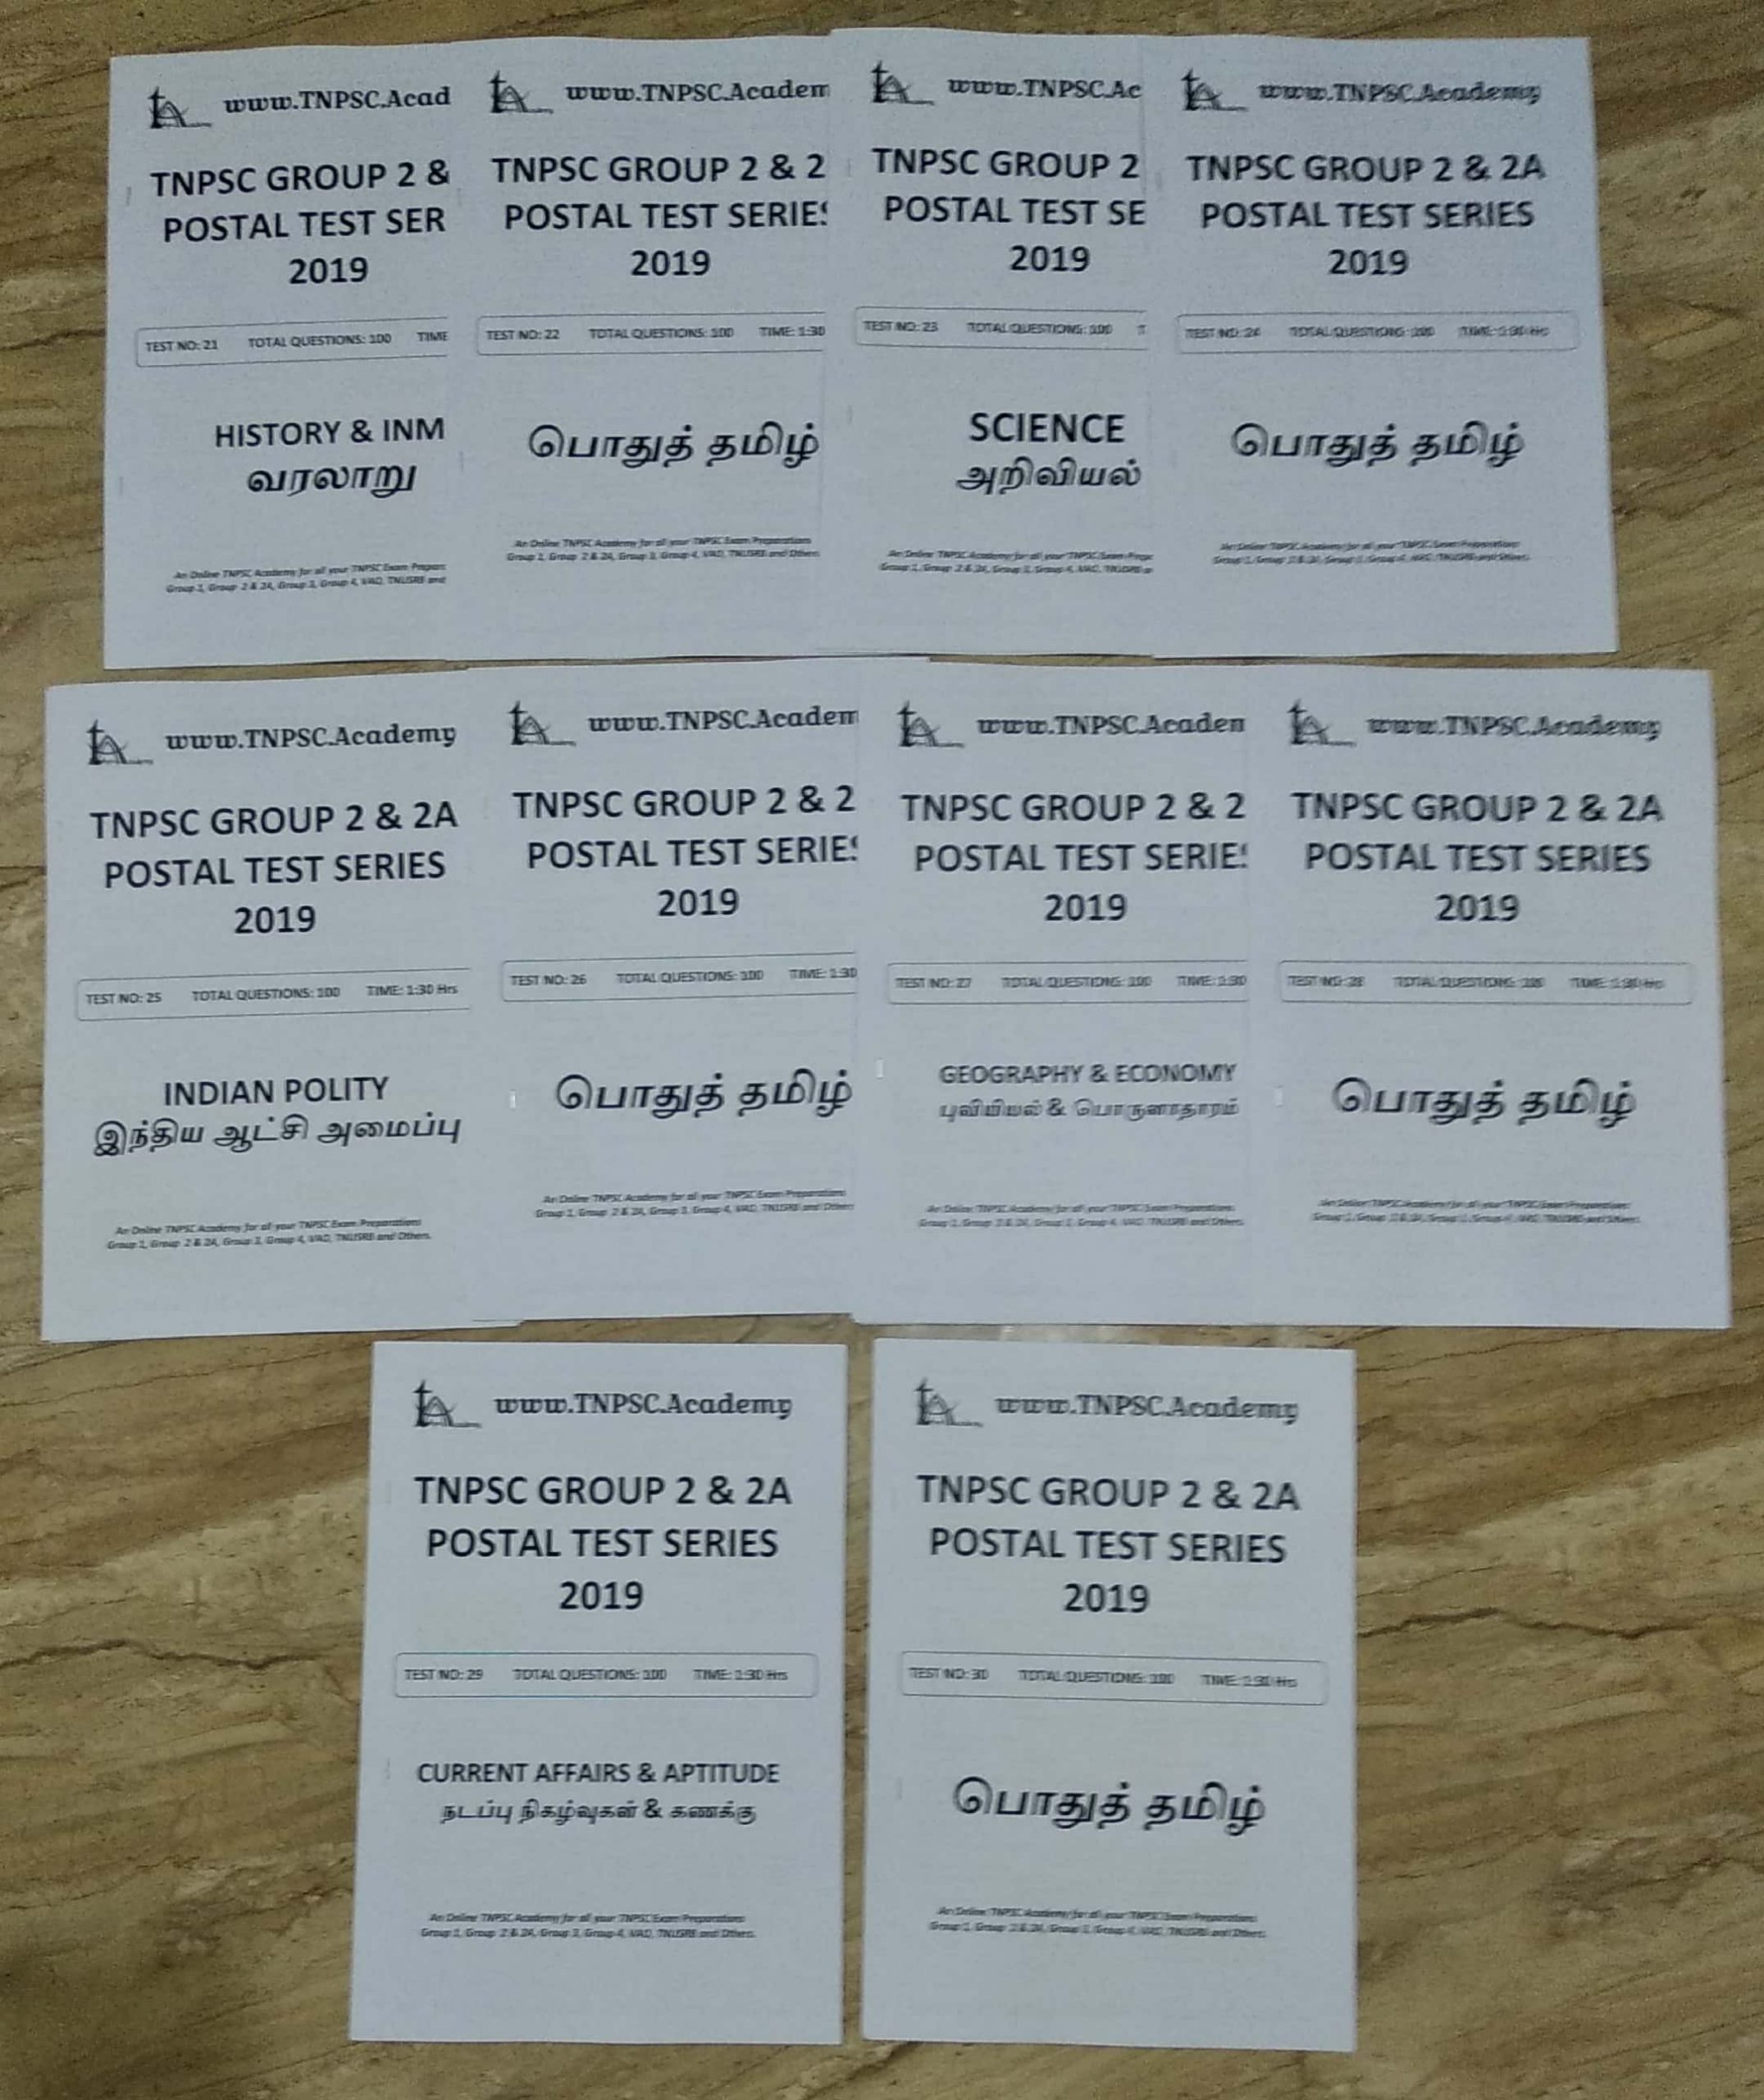 www.TNPSC.Acad
TNPSC GROUP 2 &
POSTAL TEST SER
2019
TEST NO: 21 TOTAL QUESTIONS: 100 TIME
HISTORY & INM
வரலாறு
An Online TNPSC Academy for all your TNPSC Exam Prepara
Group 1, Group 2 & 2A, Group 3, Group 4, VAO, TNUSRB and
www.TNPSC.Academ
TNPSC GROUP 2 & 2
POSTAL TEST SERIES
2019
TEST NO: 22 TOTAL QUESTIONS: 100 TIME: 1:30
பொதுத் தமிழ்
An Online TNPSC Academy for all your TNPSC Exam Preparations
Group 1, Group 2 & 2A, Group 3, Group 4, VAO, TNUSRB and Others
www.TNPSC.Ac
TNPSC GROUP 2
POSTAL TEST SE
2019
TEST NO: 23 TOTAL QUESTIONS: 100 T
SCIENCE
அறிவியல்
An Online TNPSC Academy for all your TNPSC Exam Prepa
Group 1, Group 2 & 2A, Group 3, Group 4, VAO, TNUSRB a
www.TNPSC.Academy
TNPSC GROUP 2 & 2A
POSTAL TEST SERIES
2019
TEST NO: 24 TOTAL QUESTIONS: 100 TIME: 1:30 Hrs
பொதுத் தமிழ்
An Online TNPSC Academy for all your TNPSC Exam Preparations
Group 1, Group 2 & 2A, Group 3, Group 4, VAO, TNUSRB and Others.
www.TNPSC.Academy
TNPSC GROUP 2 & 2A
POSTAL TEST SERIES
2019
TEST NO: 25 TOTAL QUESTIONS: 100 TIME: 1:30 Hrs
INDIAN POLITY
இந்திய ஆட்சி அமைப்பு
An Online TNPSC Academy for all your TNPSC Exam Preparations
Group 1, Group 2 & 2A, Group 3, Group 4, VAO, TNUSRB and Others.
www.TNPSC.Academ
TNPSC GROUP 2 & 2
POSTAL TEST SERIES
2019
TEST NO: 26 TOTAL QUESTIONS: 100 TIME: 1:30
பொதுத் தமிழ்
An Online TNPSC Academy for all your TNPSC Exam Preparations
Group 1, Group 2 & 2A, Group 3, Group 4, VAO, TNUSRB and Others
www.TNPSC.Academ
TNPSC GROUP 2 & 2
POSTAL TEST SERIES
2019
TEST NO: 27 TOTAL QUESTIONS: 100 TIME: 1:30
GEOGRAPHY & ECONOMY
புவியியல் & பொருளாதாரம்
An Online TNPSC Academy for all your TNPSC Exam Preparations
Group 1, Group 2 & 2A, Group 3, Group 4, VAO, TNUSRB and Others.
www.TNPSC.Academy
TNPSC GROUP 2 & 2A
POSTAL TEST SERIES
2019
TEST NO: 28 TOTAL QUESTIONS: 100 TIME: 1:30 Hrs
பொதுத் தமிழ்
An Online TNPSC Academy for all your TNPSC Exam Preparations
Group 1, Group 2 & 2A, Group 3, Group 4, VAO, TNUSRB and Others.
www.TNPSC.Academy
TNPSC GROUP 2 & 2A
POSTAL TEST SERIES
2019
TEST NO: 29 TOTAL QUESTIONS: 100 TIME: 1:30 Hrs
CURRENT AFFAIRS & APTITUDE
நடப்பு நிகழ்வுகள் & கணக்கு
An Online TNPSC Academy for all your TNPSC Exam Preparations
Group 1, Group 2 & 2A, Group 3, Group 4, VAO, TNUSRB and Others.
www.TNPSC.Academy
TNPSC GROUP 2 & 2A
POSTAL TEST SERIES
2019
TEST NO: 30 TOTAL QUESTIONS: 100 TIME: 1:30 Hrs
பொதுத் தமிழ்
An Online TNPSC Academy for all your TNPSC Exam Preparations
Group 1, Group 2 & 2A, Group 3, Group 4, VAO, TNUSRB and Others.